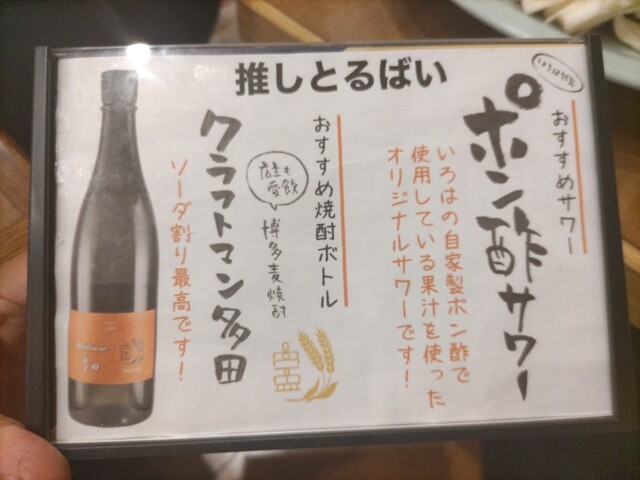 推しとるばい
いろは特製
おすすめサワー
ポン酢サワー
いろはの自家製ポン酢で
使用している果汁を使った
オリジナルサワーです!
おすすめ焼酎ボトル
店主も
愛飲
博多麦焼酎
クラフトマン多田
ソーダ割り最高です!
多田